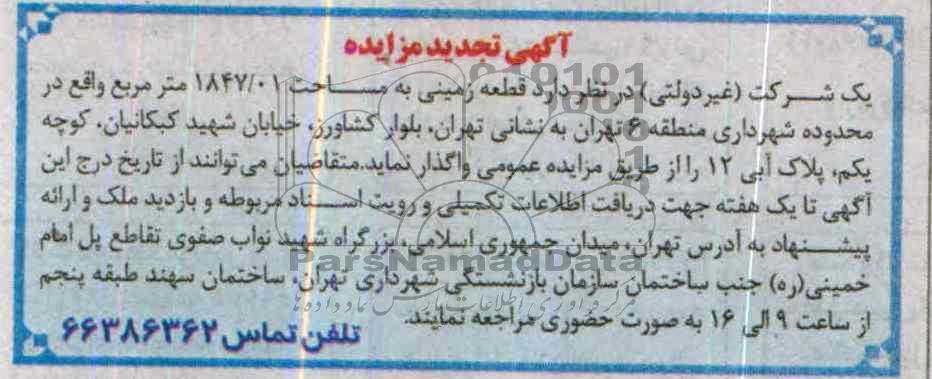 آگهی تجدید مزایده
یک شرکت (غیردولتی) در نظر دارد قطعه زمینی به مساحت ۱۸۴۷/۰۱ متر مربع واقع در
محدوده شهرداری منطقه ۶ تهران به نشانی تهران، بلوار کشاورز، خیابان شهید کبکانیان، کوچه
یکم، پلاک آبی ۱۲ را از طریق مزایده عمومی واگذار نماید.متقاضیان می توانند از تاریخ درج این
آگهی تا یک هفته جهت دریافت اطلاعات تکمیلی و رویت اسناد مربوطه و بازدید ملک و ارائه
پیشنهاد به آدرس تهران، میدان جمهوری اسلامی، بزرگراه شهید نواب صفوی تقاطع پل امام
خمینی(ره) جنب ساختمان سازمان بازنشستگی شهرداری تهران، ساختمان سهند طبقه پنجم
از ساعت ۹ الی ۱۶ به صورت حضوری مراجعه نمایند.
تلفن تماس ۶۶۳۸۶۳۶۲
ParsNamadData